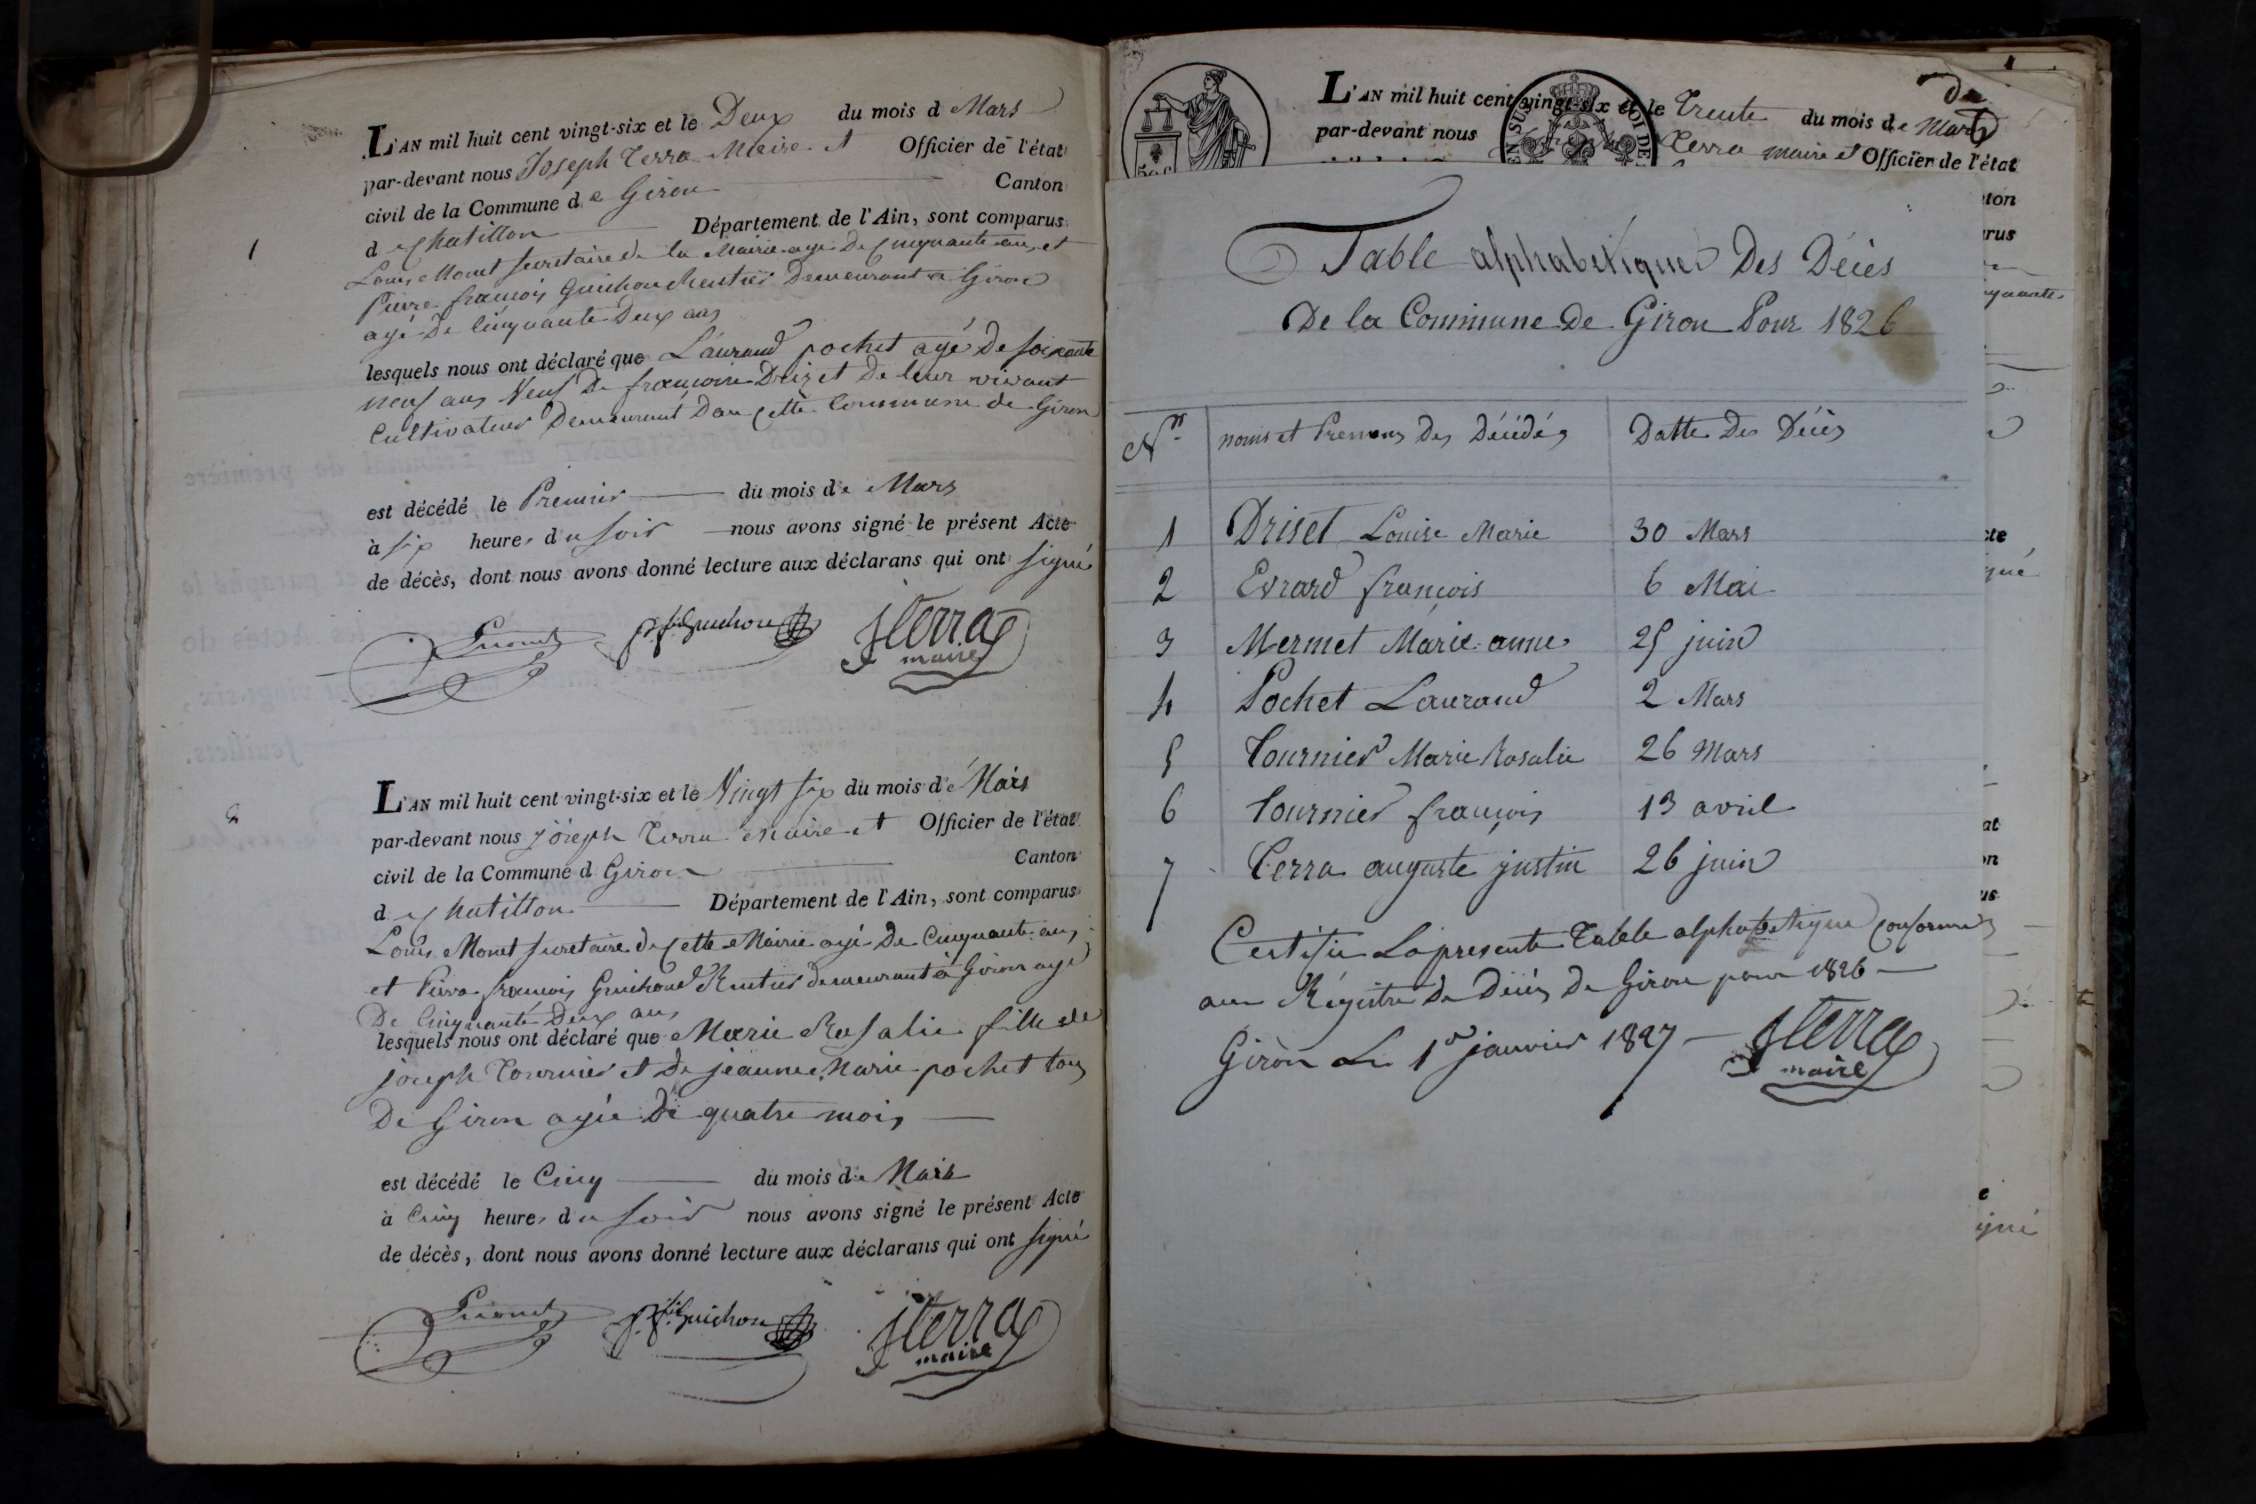 1
L'AN mil huit cent vingt-six et le Deux du mois d Mars
par-devant nous Joseph Terra Maire et Officier de l'état
civil de la Commune de Giron Canton
de Chatillon Département de l'Ain, sont comparus
Louis Monet Secretaire de la Mairie agé De Cinquante ans, et
Pierre françois Guichon Rentier Demeurant a Giron
agé De Cinquante Deux ans
lesquels nous ont déclaré que Laurand pochet agé De soixante
neuf ans Veuf De françoise Drizet De leur vivant
Cultivateur Demeurant Dans Cette Commune de Giron
est décédé le Premier du mois de Mars
à six heures du soir nous avons signé le présent Acte
de décès, dont nous avons donné lecture aux déclarans qui ont signé
p.f. Guichon
J Terra
maire
2
L'AN mil huit cent vingt-six et le Vingt six du mois de Mars
par-devant nous joseph Terra maire et Officier de l'état
civil de la Commune d Giron Canton
de Chatillon Département de l'Ain, sont comparus
Louis Monet Secretaire de Cette Mairie agé De Cinquante ans,
et Pierre françois Guichond Rentier demeurant à Giron agé
De Cinquante Deux ans
lesquels nous ont déclaré que Marie Rosalie fille de
joseph Tournier et De jeanne Marie pochet tous
De Giron agée De quatre mois
est décédé le Cinq du mois de Mars
à Cinq heures du soir nous avons signé le présent Acte
de décès, dont nous avons donné lecture aux déclarans qui ont signé
p.f. Guichon
J Terra
maire
L'AN mil huit cent vingt-six et le Trente du mois de Mars
par-devant nous Terra maire et Officier de l'état
Table alphabetique Des Décès
De la Commune De Giron Pour 1826
Nos noms et Prenoms Des Décédés Datte Des Décès
1 Driset Louise Marie 30 Mars
2 Evrard françois 6 Mai
3 Mermet Marie anne 25 juin
4 Pochet Laurand 2 Mars
5 Tournier Marie Rosalie 26 Mars
6 Tournier françois 13 avril
7 Terra auguste justin 26 juin
Certifie La presente Table alphabetique Conforme
au Régistre De Décès De Giron pour 1826
Giron Le 1er janvier 1827
J Terra
maire